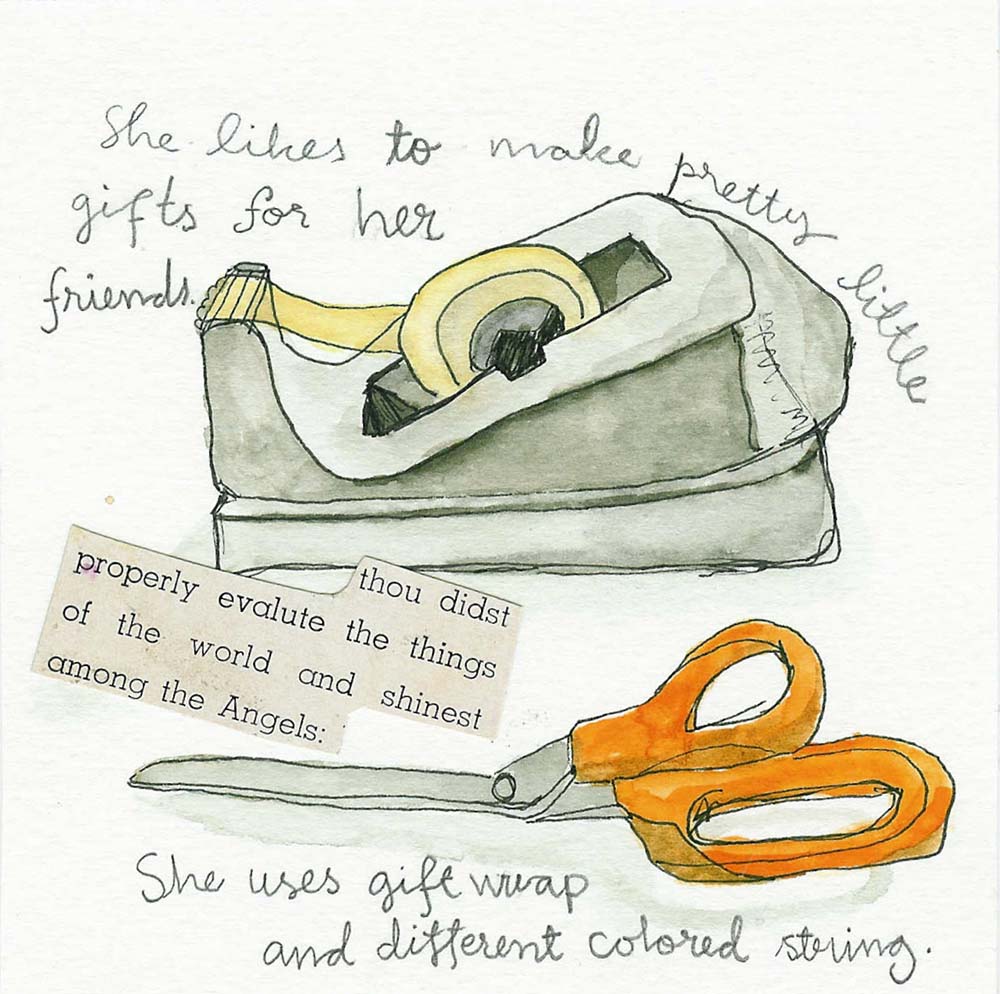 She likes to make pretty little
gifts for her
friends.
thou didst
properly evalute the things
of the world and shinest
among the Angels:
She uses gift wrap
and different colored string.